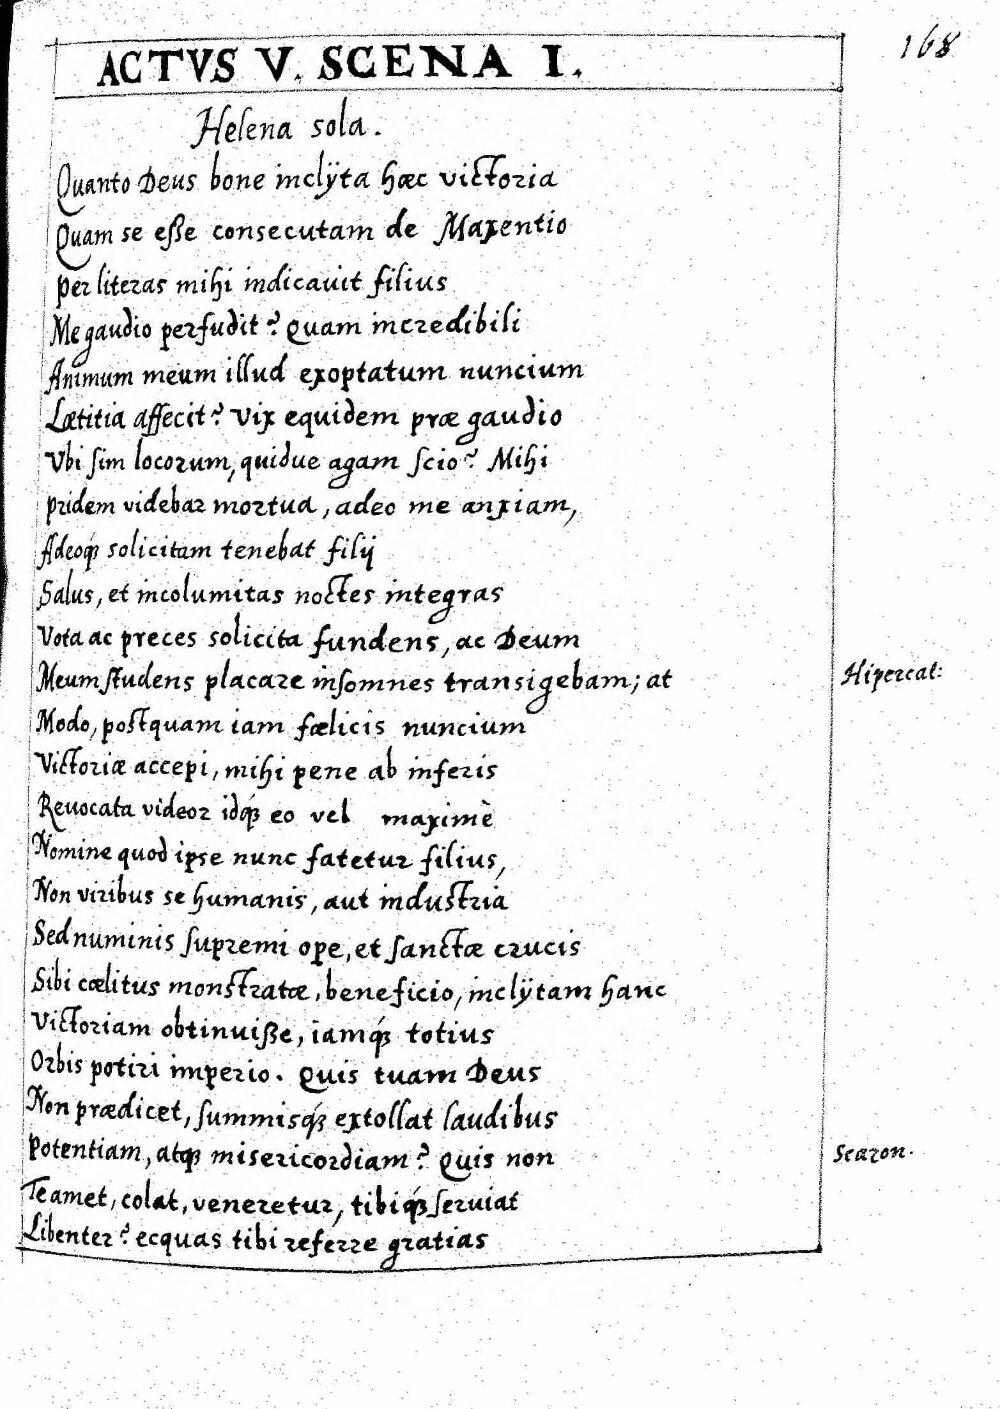 168
ACTVS V. SCENA I.
Helena sola.
Quanto Deus bone inclÿta hæc victoria
Quam se eße consecutam de Maxentio
Per literas mihi indicavit filius
Me gaudio perfudit? Quam incredibili
Animum meum illud exoptatum nuncium
Lætitia affecit? Vix equidem præ gaudio
Vbi sim locorum, quidue agam scio? Mihi
Pridem videbar mortua, adeo me anxiam,
Adeoq́ solicitam tenebat filij
Salus, et incolumitas noctes integras
Vota ac preces solicita fundens, ac Deum
Meum studens placare insomnes transigebam; at
Hipercat:
Modo, postquam iam fœlicis nuncium
Victoriæ accepi, mihi pene ab inferis
Revocata videor idq́ eo vel maximè
Nomine quod ipse nunc fatetur filius,
Non viribus se humanis, aut industria
Sed numinis supremi ope, et sanctæ crucis
Sibi cœlitus monstratæ, beneficio, inclÿtam hanc
Victoriam obtinuiße, iamq́ totius
Orbis potiri imperio. Quis tuam Deus
Non prædicet, summisq́ extollat laudibus
Potentiam, atq misericordiam? Quis non
Scazon.
Te amet, colat, veneretur, tibiq́ seruiat
Libenter? ecquas tibi referre gratias